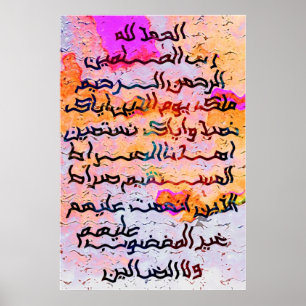 الحمد لله
رب العالمين
الرحمن الرحيم
ملك يوم الدين اياك
نعبد واياك نستعين
اهدنا الصراط
المستقيم صراط
الذين انعمت عليهم
غير المغضوب عليهم
ولا الضالين